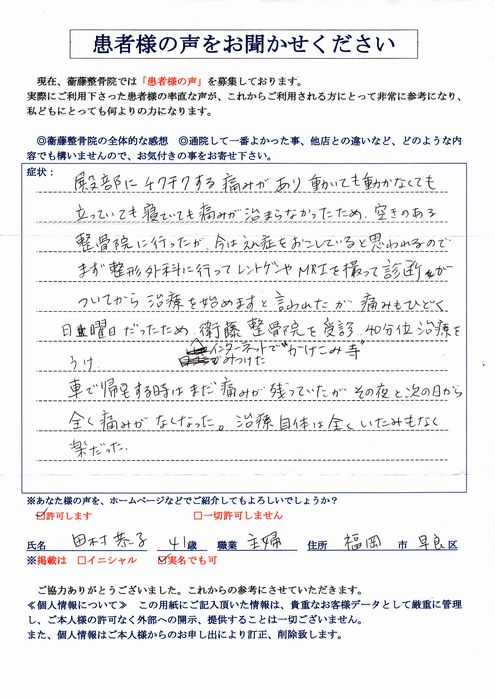 患者様の声をお聞かせください
現在、衞藤整骨院では「患者様の声」を募集しております。
実際にご利用下さった患者様の率直な声が、これからご利用される方にとって非常に参考になり、
私どもにとっても何よりの力になります。
◎衞藤整骨院の全体的な感想　◎通院して一番よかった事、他店との違いなど、どのような内
容でも構いませんので、お気付きの事をお寄せ下さい。
症状：
殿部にチクチクする痛みがあり動いても動かなくても
立っていても寝ていても痛みが治まらなかったため、空きのある
整骨院に行ったが、今は炎症をおこしていると思われるので
まず整形外科に行ってレントゲンやMRIを撮って診断が
ついてから治療を始めますと言われたが痛みもひどく
日曜日だったため、衛藤整骨院を受診。40分位治療を
うけ、
インターネットで"かけこみ寺"
でみつけた
車で帰宅する時はまだ痛みが残っていたがその夜と次の日から
全く痛みがなくなった。治療自体は全くいたみもなく
楽だった。
※あなた様の声を、ホームページなどでご紹介してもよろしいでしょうか？
☑許可します　□一切許可しません
氏名　田村恭子　41歳　職業　主婦　住所　福岡　市　早良区
※掲載は　□イニシャル　☑実名でも可
ご協力ありがとうございました。これからの参考にさせていただきます。
≪個人情報について≫　この用紙にご記入頂いた情報は、貴重なお客様データとして厳重に管理
し、ご本人様の許可なく外部への開示、提供することは一切ございません。
また、個人情報はご本人様からのお申し出により訂正、削除致します。